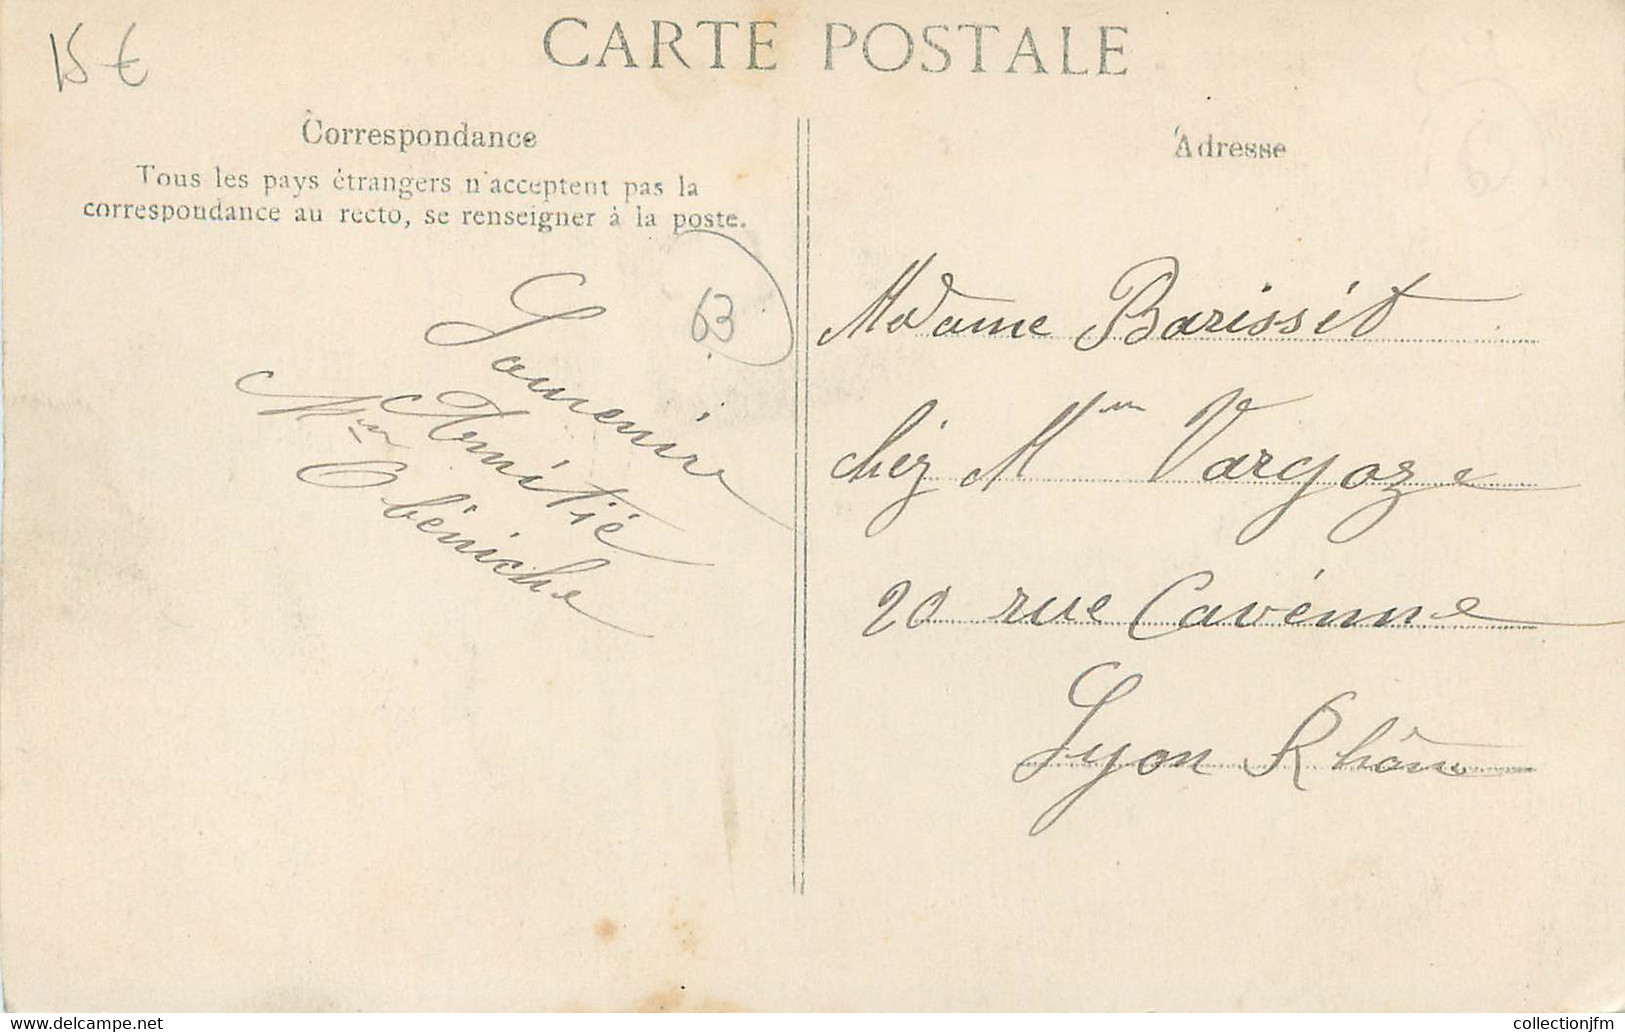 15 €
CARTE POSTALE
Correspondance
Tous les pays étrangers n'acceptent pas la
correspondance au recto, se renseigner à la poste.
63
Souvenir
Amitié
Mme
Obéniche
Adresse
Madame Barissit
chez Mme Vargoze
20 rue Cavénne
Lyon Rhône
www.delcampe.net
collectionjfm